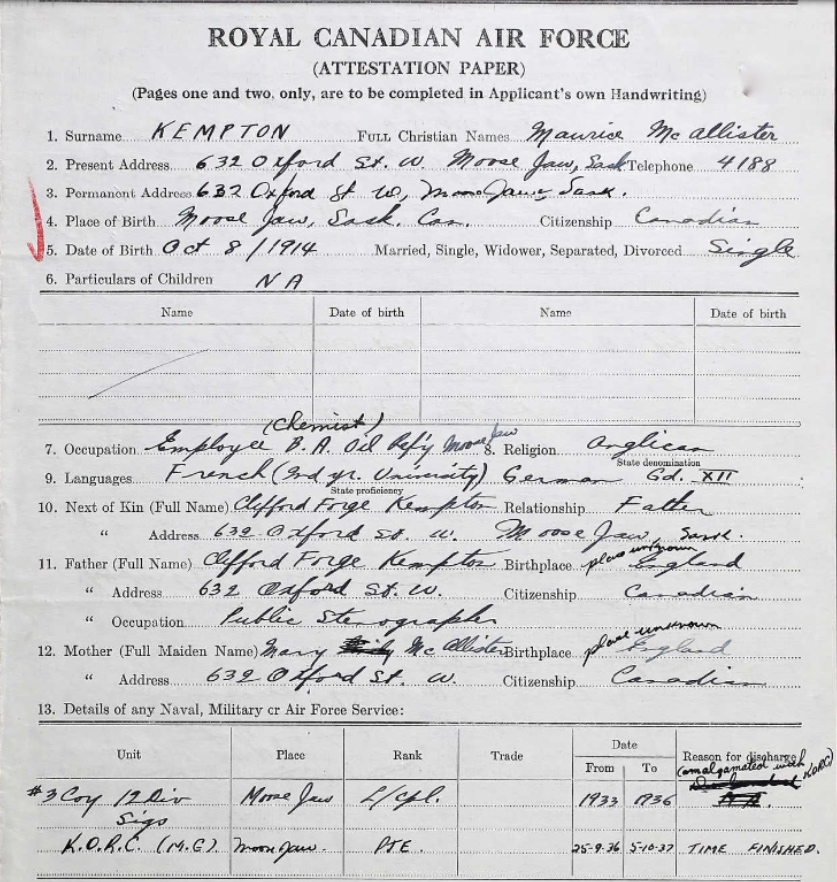 ROYAL CANADIAN AIR FORCE
(ATTESTATION PAPER)
(Pages one and two, only, are to be completed in Applicant's own Handwriting)
1. Surname KEMPTON FULL Christian Names Maurice McAllister
2. Present Address 632 Oxford St. W. Moose Jaw, Sask Telephone 4188
3. Permanent Address 632 Oxford St W, Moose Jaw, Sask.
4. Place of Birth Moose Jaw, Sask. Can. Citizenship Canadian
5. Date of Birth Oct 8/1914 Married, Single, Widower, Separated, Divorced Single
6. Particulars of Children NA
Name Date of birth Name Date of birth
(Chemist)
7. Occupation Employee B.A. Oil Ref'y Moose Jaw 8. Religion Anglican
State denomination
9. Languages French (2nd yr. University) German Gd. XII
State proficiency
10. Next of Kin (Full Name) Clifford Forge Kempton Relationship Father
" Address 632 Oxford St. W. Moose Jaw, Sask.
place unknown
11. Father (Full Name) Clifford Forge Kempton Birthplace England
" Address 632 Oxford St. W. Citizenship Canadian
" Occupation Public Stenographer
place unknown
12. Mother (Full Maiden Name) Mary McAllister Birthplace England
" Address 632 Oxford St. W. Citizenship Canadian
13. Details of any Naval, Military or Air Force Service:
Unit Place Rank Trade Date From To Reason for discharge
(amalgamated with KORC)
#3 Coy 12 Div Moose Jaw L/Cpl. 1933 1936
Sigs
K.O.R.C. (M.G) Moose Jaw. PTE. 25-9-36 5-10-37 TIME FINISHED.